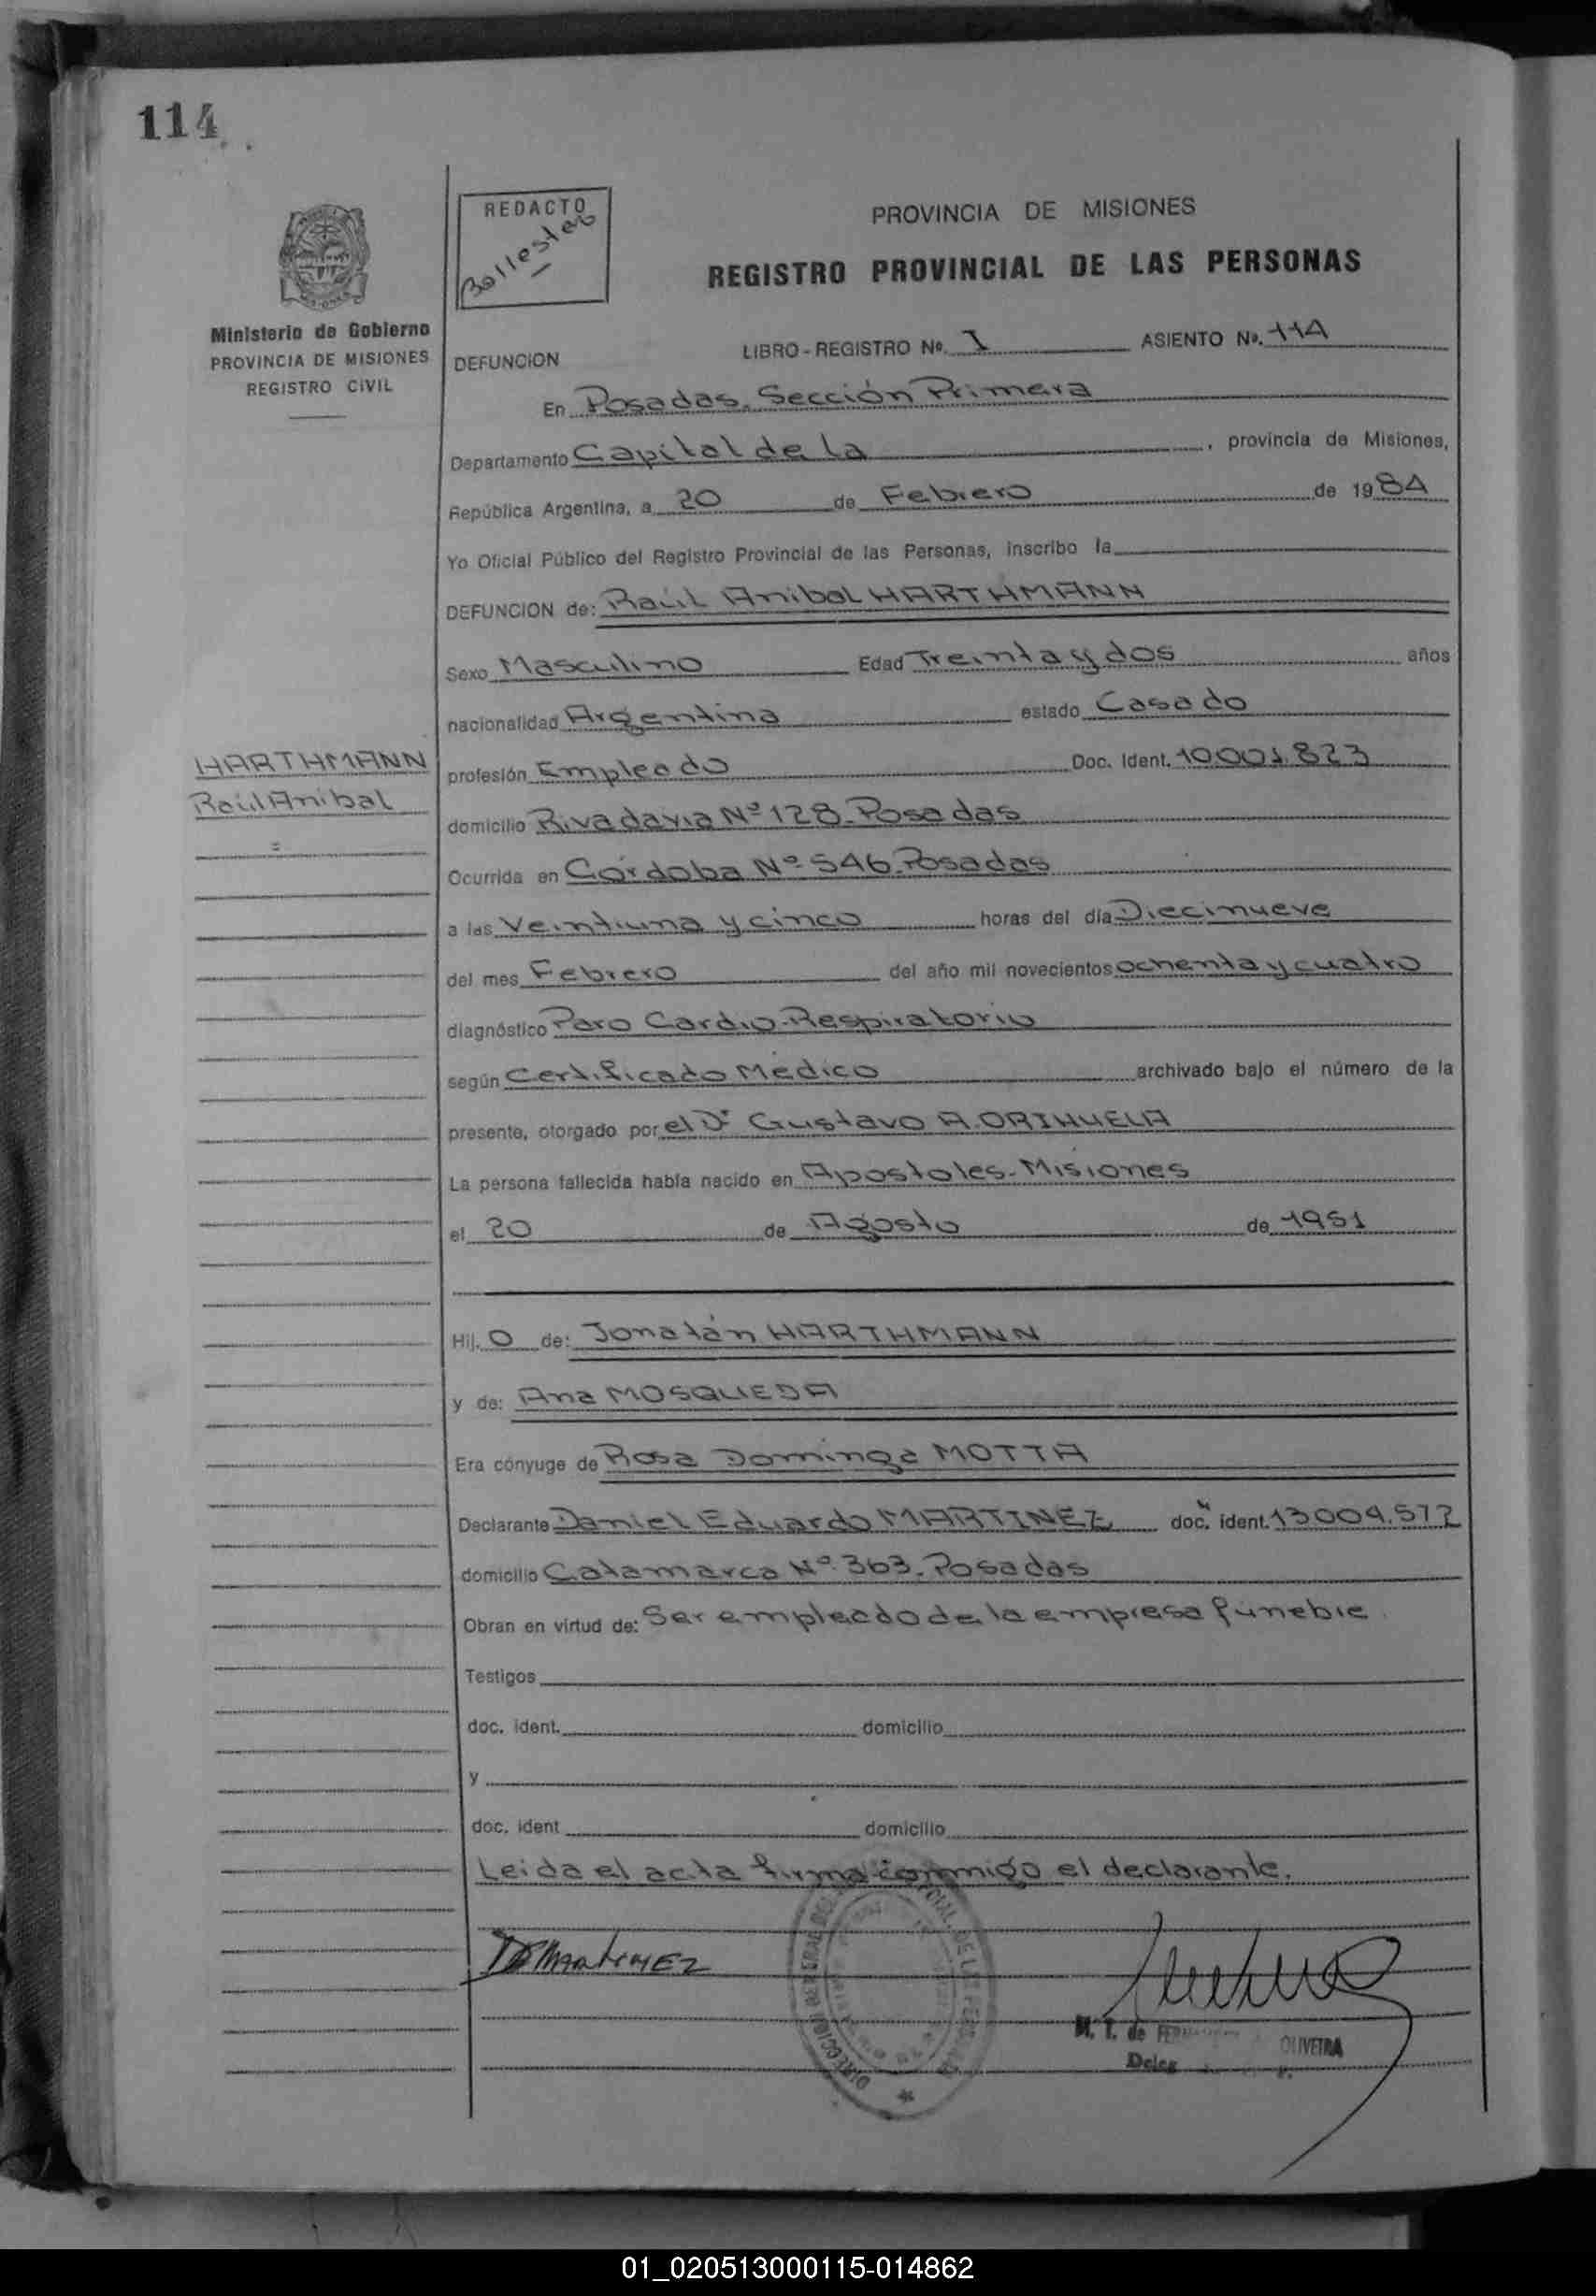 114
REDACTO
Ballester
PROVINCIA DE MISIONES
REGISTRO PROVINCIAL DE LAS PERSONAS
Ministerio de Gobierno
PROVINCIA DE MISIONES
REGISTRO CIVIL
DEFUNCION LIBRO - REGISTRO Nº. I ASIENTO Nº. 114
En Posadas. Sección Primera
Departamento Capital de la , provincia de Misiones,
República Argentina, a 20 de Febrero de 1984
Yo Oficial Público del Registro Provincial de las Personas, inscribo la
DEFUNCION de: Raúl Anibal HARTHMANN
Sexo Masculino Edad Treinta y dos años
nacionalidad Argentina estado Casado
HARTHMANN
Raúl Anibal
profesión Empleado Doc. Ident. 10.001.823
domicilio Rivadavia Nº 128. Posadas
Ocurrida en Córdoba Nº 546. Posadas
a las Veintiuna y cinco horas del día Diecinueve
del mes Febrero del año mil novecientos ochenta y cuatro
diagnóstico Paro Cardio-Respiratorio
según Certificado Médico archivado bajo el número de la
presente, otorgado por el Dr Gustavo A. ORIHUELA
La persona fallecida había nacido en Apostoles-Misiones
el 20 de Agosto de 1951
Hij. O de: Jonatán HARTHMANN
y de: Ana MOSQUEDA
Era cónyuge de Rosa Dominga MOTTA
Declarante Daniel Eduardo MARTINEZ doc. ident. 13.004.572
domicilio Catamarca Nº 363. Posadas
Obran en virtud de: Ser empleado de la empresa fúnebre.
Testigos
doc. ident. domicilio
y
doc. ident domicilio
Leida el acta firma conmigo el declarante.
D E MARTINEZ
M. T. de OLIVEIRA
Deleg
01_020513000115-014862